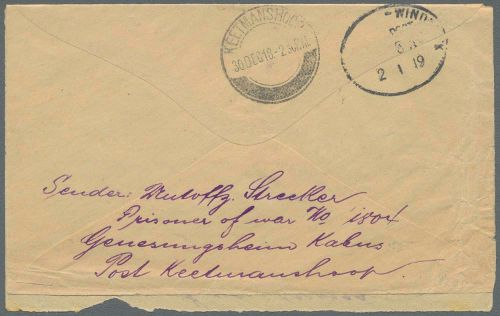 KEETMANSHOOP
30.DEC18.-2.30PM
WINDHUK
2 1 19
Sender: Deutoffz. Strecker
Prisoner of war No 1804
Genesungsheim Kabus
Post Keetmanshoop.